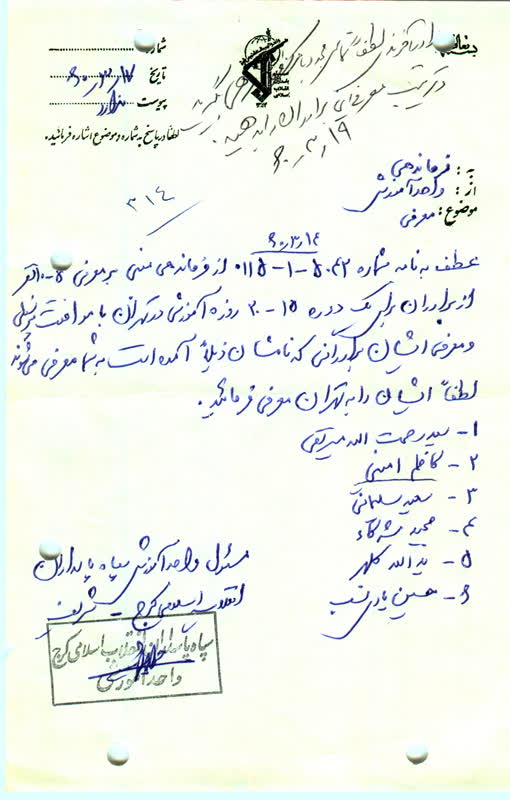 شماره
تاریخ ۶۰/۳/۱۷
پیوست ندارد
لطفا در پاسخ به شماره و موضوع اشاره فرمائید.
بسمه تعالی
لطفاً
معرفی برادران
۶۰/۳/۱۹
به: فرماندهی
از: واحد آموزش
موضوع: معرفی
۳۱۴
۶۰/۳/۱۴
عطف به نامه شماره ۵۰۴۲-۱-۰۱۱۵ از فرماندهی مبنی بر معرفی ۵-۱۰ نفر
از برادران برای یک دوره ۱۵-۲۰ روزه آموزشی در تهران با موافقت پرسنلی
و معرفی ایشان برادرانی که نامشان ذیلاً آمده است به شما معرفی میشوند
لطفاً ایشان را به تهران معرفی فرمائید.
۱- سید رحمت الله میرتقی
۲- کاظم امینی
۳- سعید سلیمانی
۴- مجید شرکاء
۵- یدالله کلهر
۶- حسین یاری نسب
مسئول واحد آموزش سپاه پاسداران
انقلاب اسلامی کرج - شریف
سپاه پاسداران انقلاب اسلامی کرج
واحد آموزش